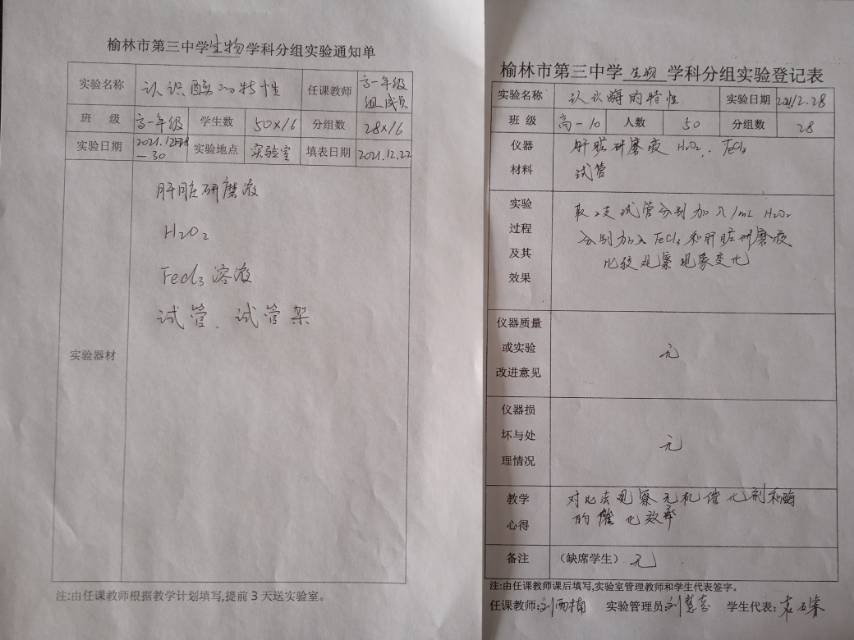 榆林市第三中学生物学科分组实验通知单
实验名称 认识酶的特性 任课教师 高一年级组成员
班 级 高一年级 学生数 50×16 分组数 28×16
实验日期 2021.12.28—30 实验地点 实验室 填表日期 2021.12.22
实验器材
肝脏研磨液
H2O2
FeCl3溶液
试管、试管架
注:由任课教师根据教学计划填写,提前3天送实验室。
榆林市第三中学生物学科分组实验登记表
实验名称 认识酶的特性 实验日期 2021.12.28
班 级 高一10 人数 50 分组数 28
仪器材料
肝脏研磨液 H2O2、FeCl3
试管
实验过程及其效果
取2支试管分别加入1mL H2O2
分别加入FeCl3和肝脏研磨液
比较观察现象变化
仪器质量或实验改进意见 无
仪器损坏与处理情况 无
教学心得
对比法观察无机催化剂和酶
的催化效率
备注 (缺席学生) 无
注:由任课教师课后填写,实验室管理教师和学生代表签字。
任课教师: 实验管理员: 学生代表: